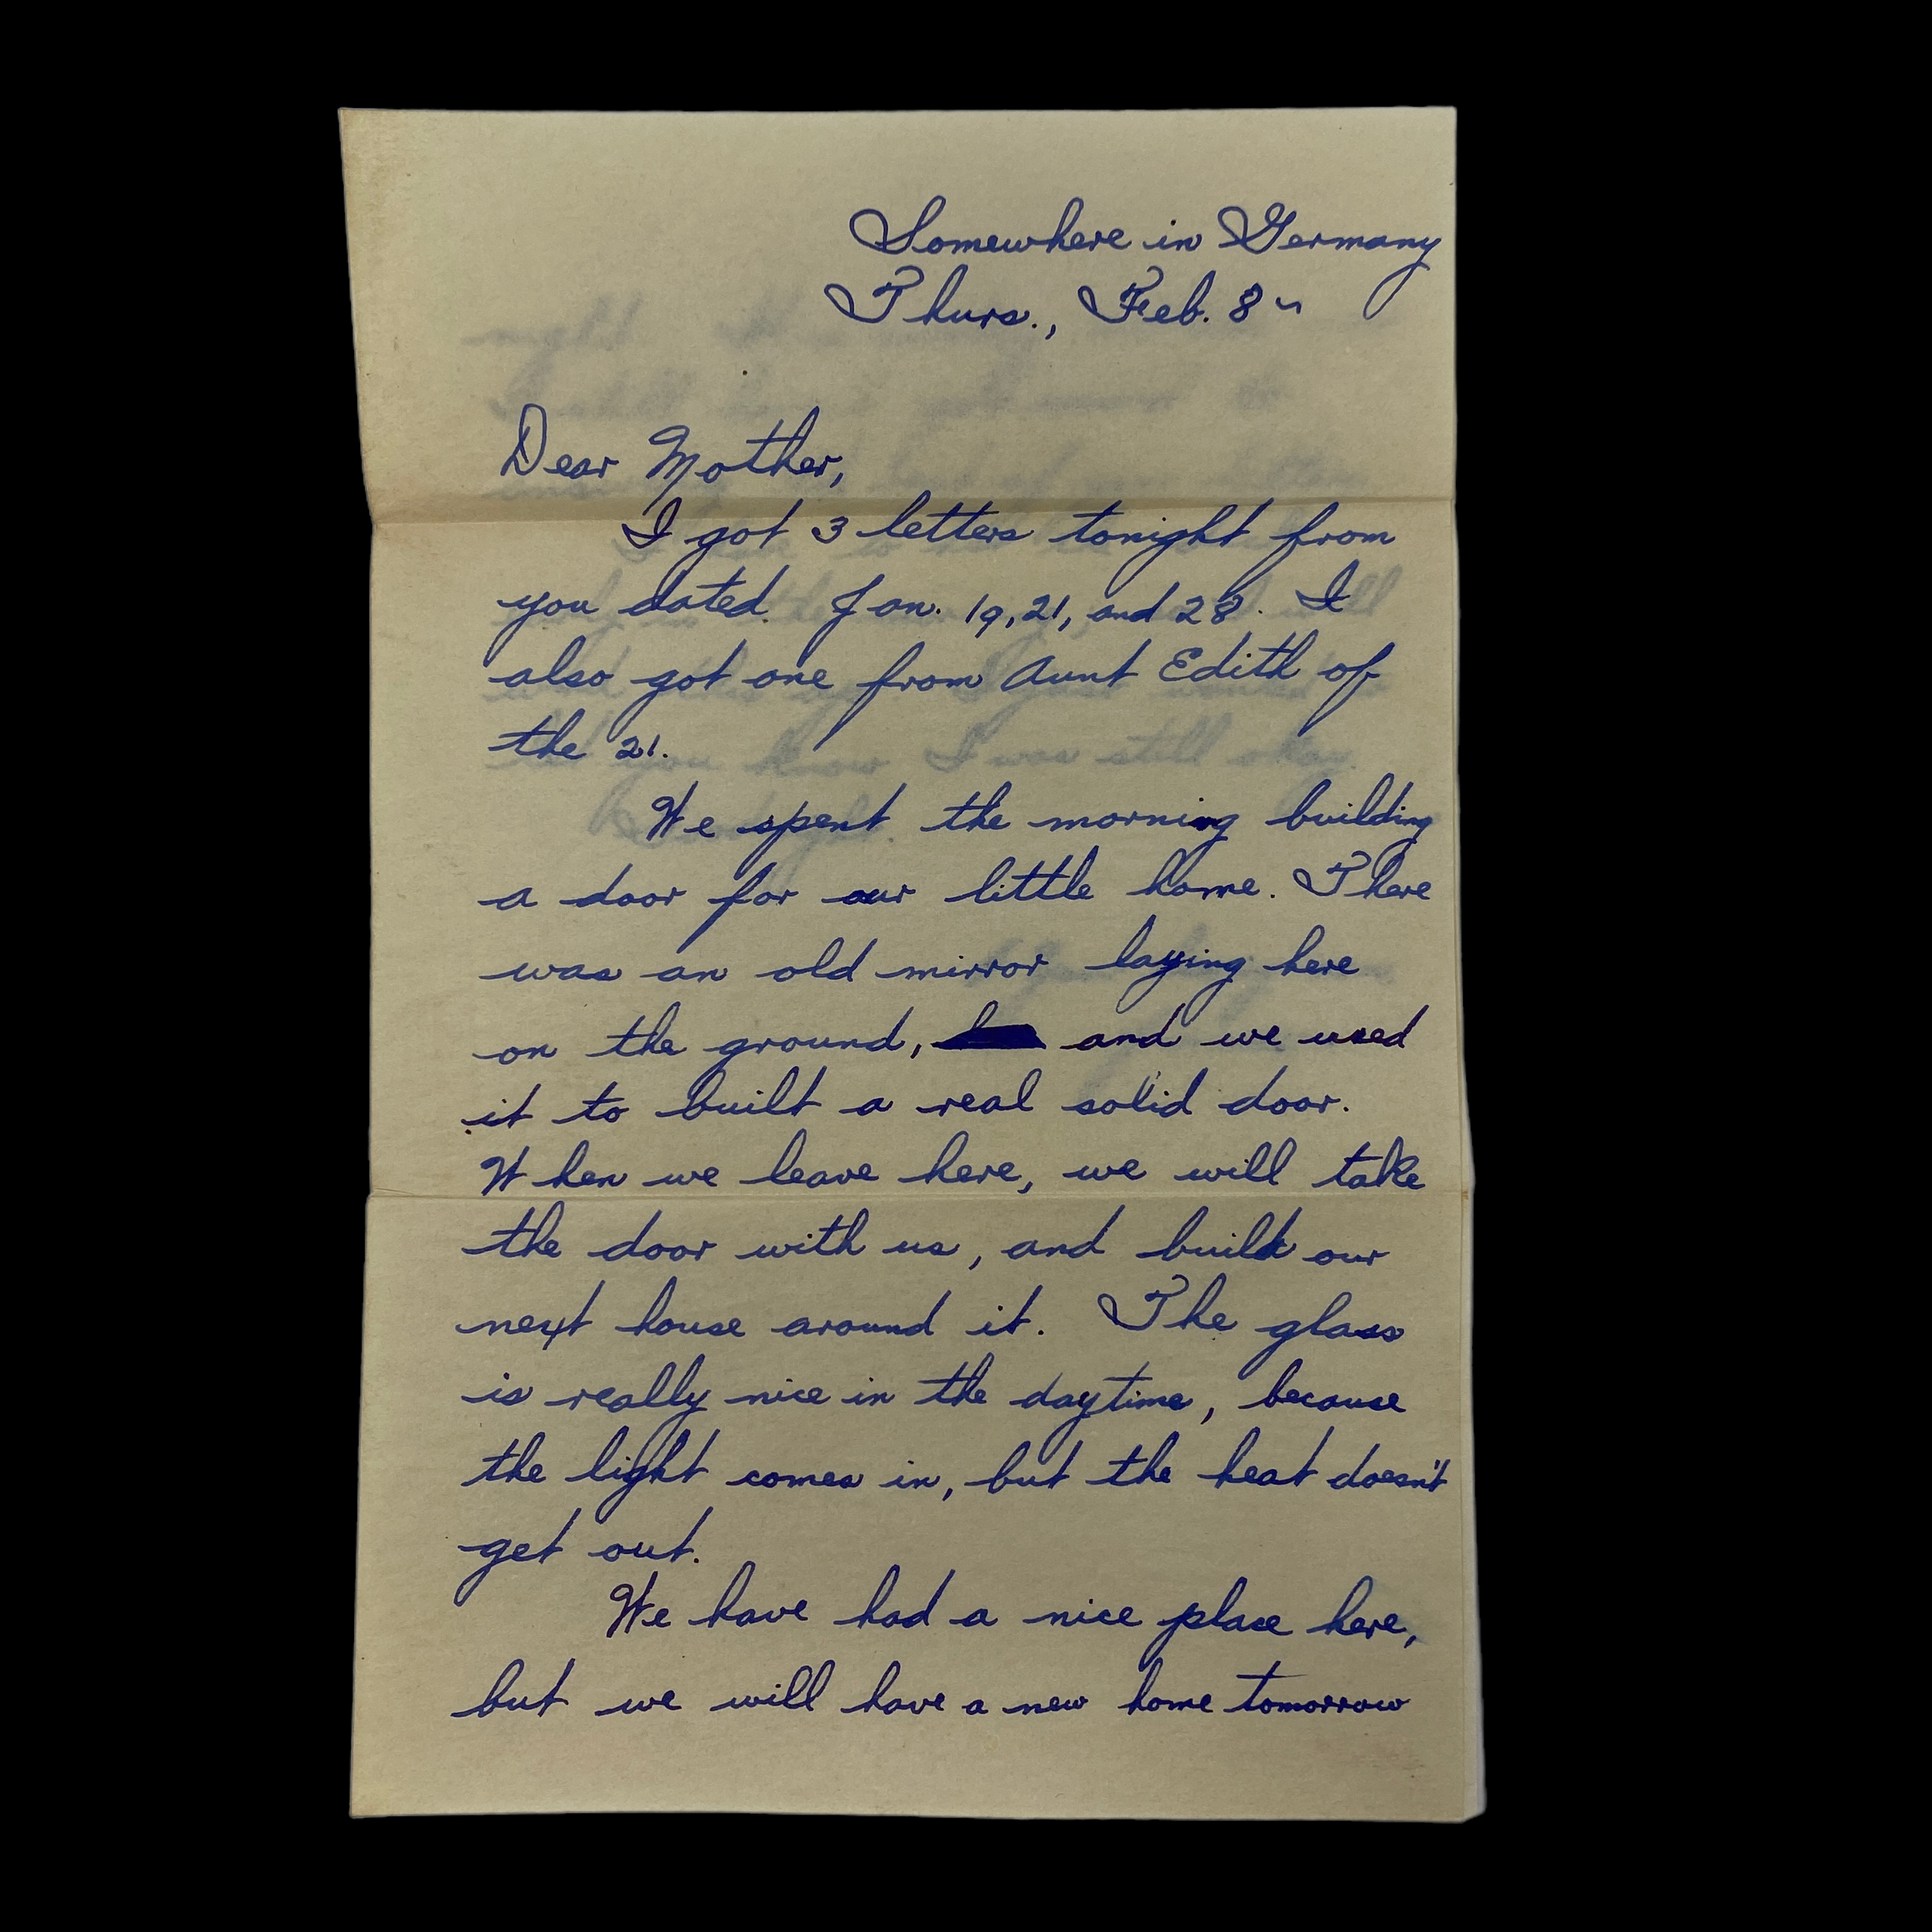 Somewhere in Germany
Thurs., Feb. 8
Dear Mother,
I got 3 letters tonight from
you dated Jan. 19, 21, and 28. I
also got one from Aunt Edith of
the 21.
We spent the morning building
a door for our little home. There
was an old mirror laying here
on the ground, and we used
it to built a real solid door.
When we leave here, we will take
the door with us, and build our
next house around it. The glass
is really nice in the daytime, because
the light comes in, but the heat doesn't
get out.
We have had a nice place here,
but we will have a new home tomorrow